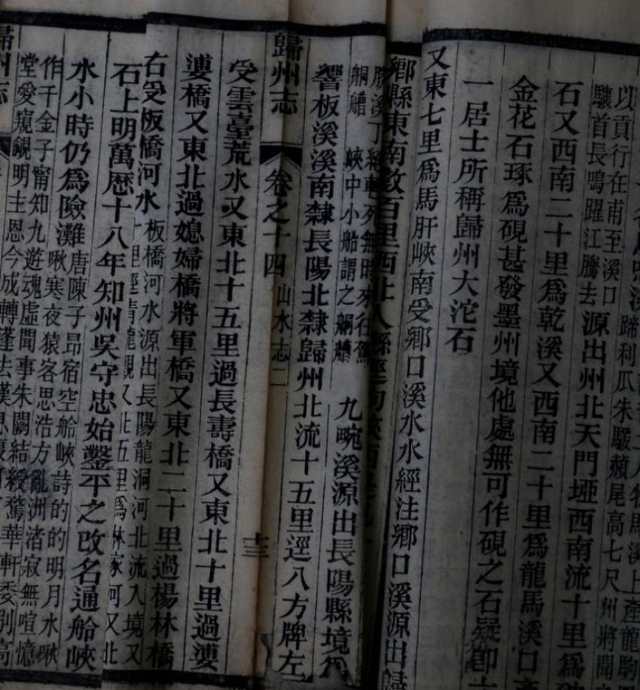 以貢行在甫至溪口
驤首長鳴躍江騰去源出州北天門埡西南流十里爲
石又西南二十里爲乾溪又西南二十里爲龍馬溪口
金花石琢爲硯甚發墨州境他處無可作硯之石疑卽
一居士所稱歸州大沱石
又東七里爲馬肝峽南受鄉口溪水水經注鄉口溪源出歸
鄉縣東南數百里西北入縣
峽中小船謂之舸艫
九畹溪源出長陽縣境
響板溪溪南隸長陽北隸歸州北流十五里逕八方牌左
歸州志 卷之十四 山水志二 十三
受雲臺荒水又東北十五里過長壽橋又東北十里過婁
婁橋又東北過媳婦橋將軍橋又東北二十里過楊林橋
右受板橋河水
板橋河水源出長陽龍洞河北流入境又
十里逕靑龍觀又北五里爲林家河又北
石上明萬歷十八年知州吳守忠始鑿平之改名通舲峽
水小時仍爲險灘
唐陳子昂宿空舲峽詩的的明月水啾
啾寒夜猿客思浩方亂洲渚寂無喧憶
作千金子甯知九遊魂虛聞事朱闕結綬騖華軒委別高
堂愛窺覦明主恩今成轉蓬去歎息復何
歸州志